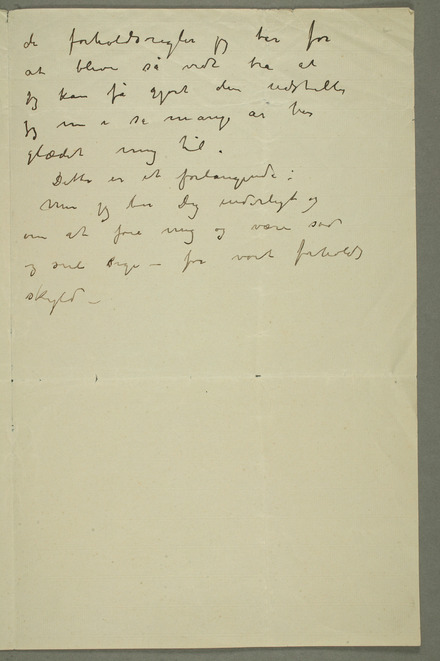 de forholdsregler jeg bør for
at blive så vidt bra at
jeg kan få gjort den udstilling
jeg nu i så mange år har
glædet mig til.
Dette er et forlangende:
Men jeg ber Dig inderligt og
om at føie mig og være sød
og snil – for vort forholds
skyld –